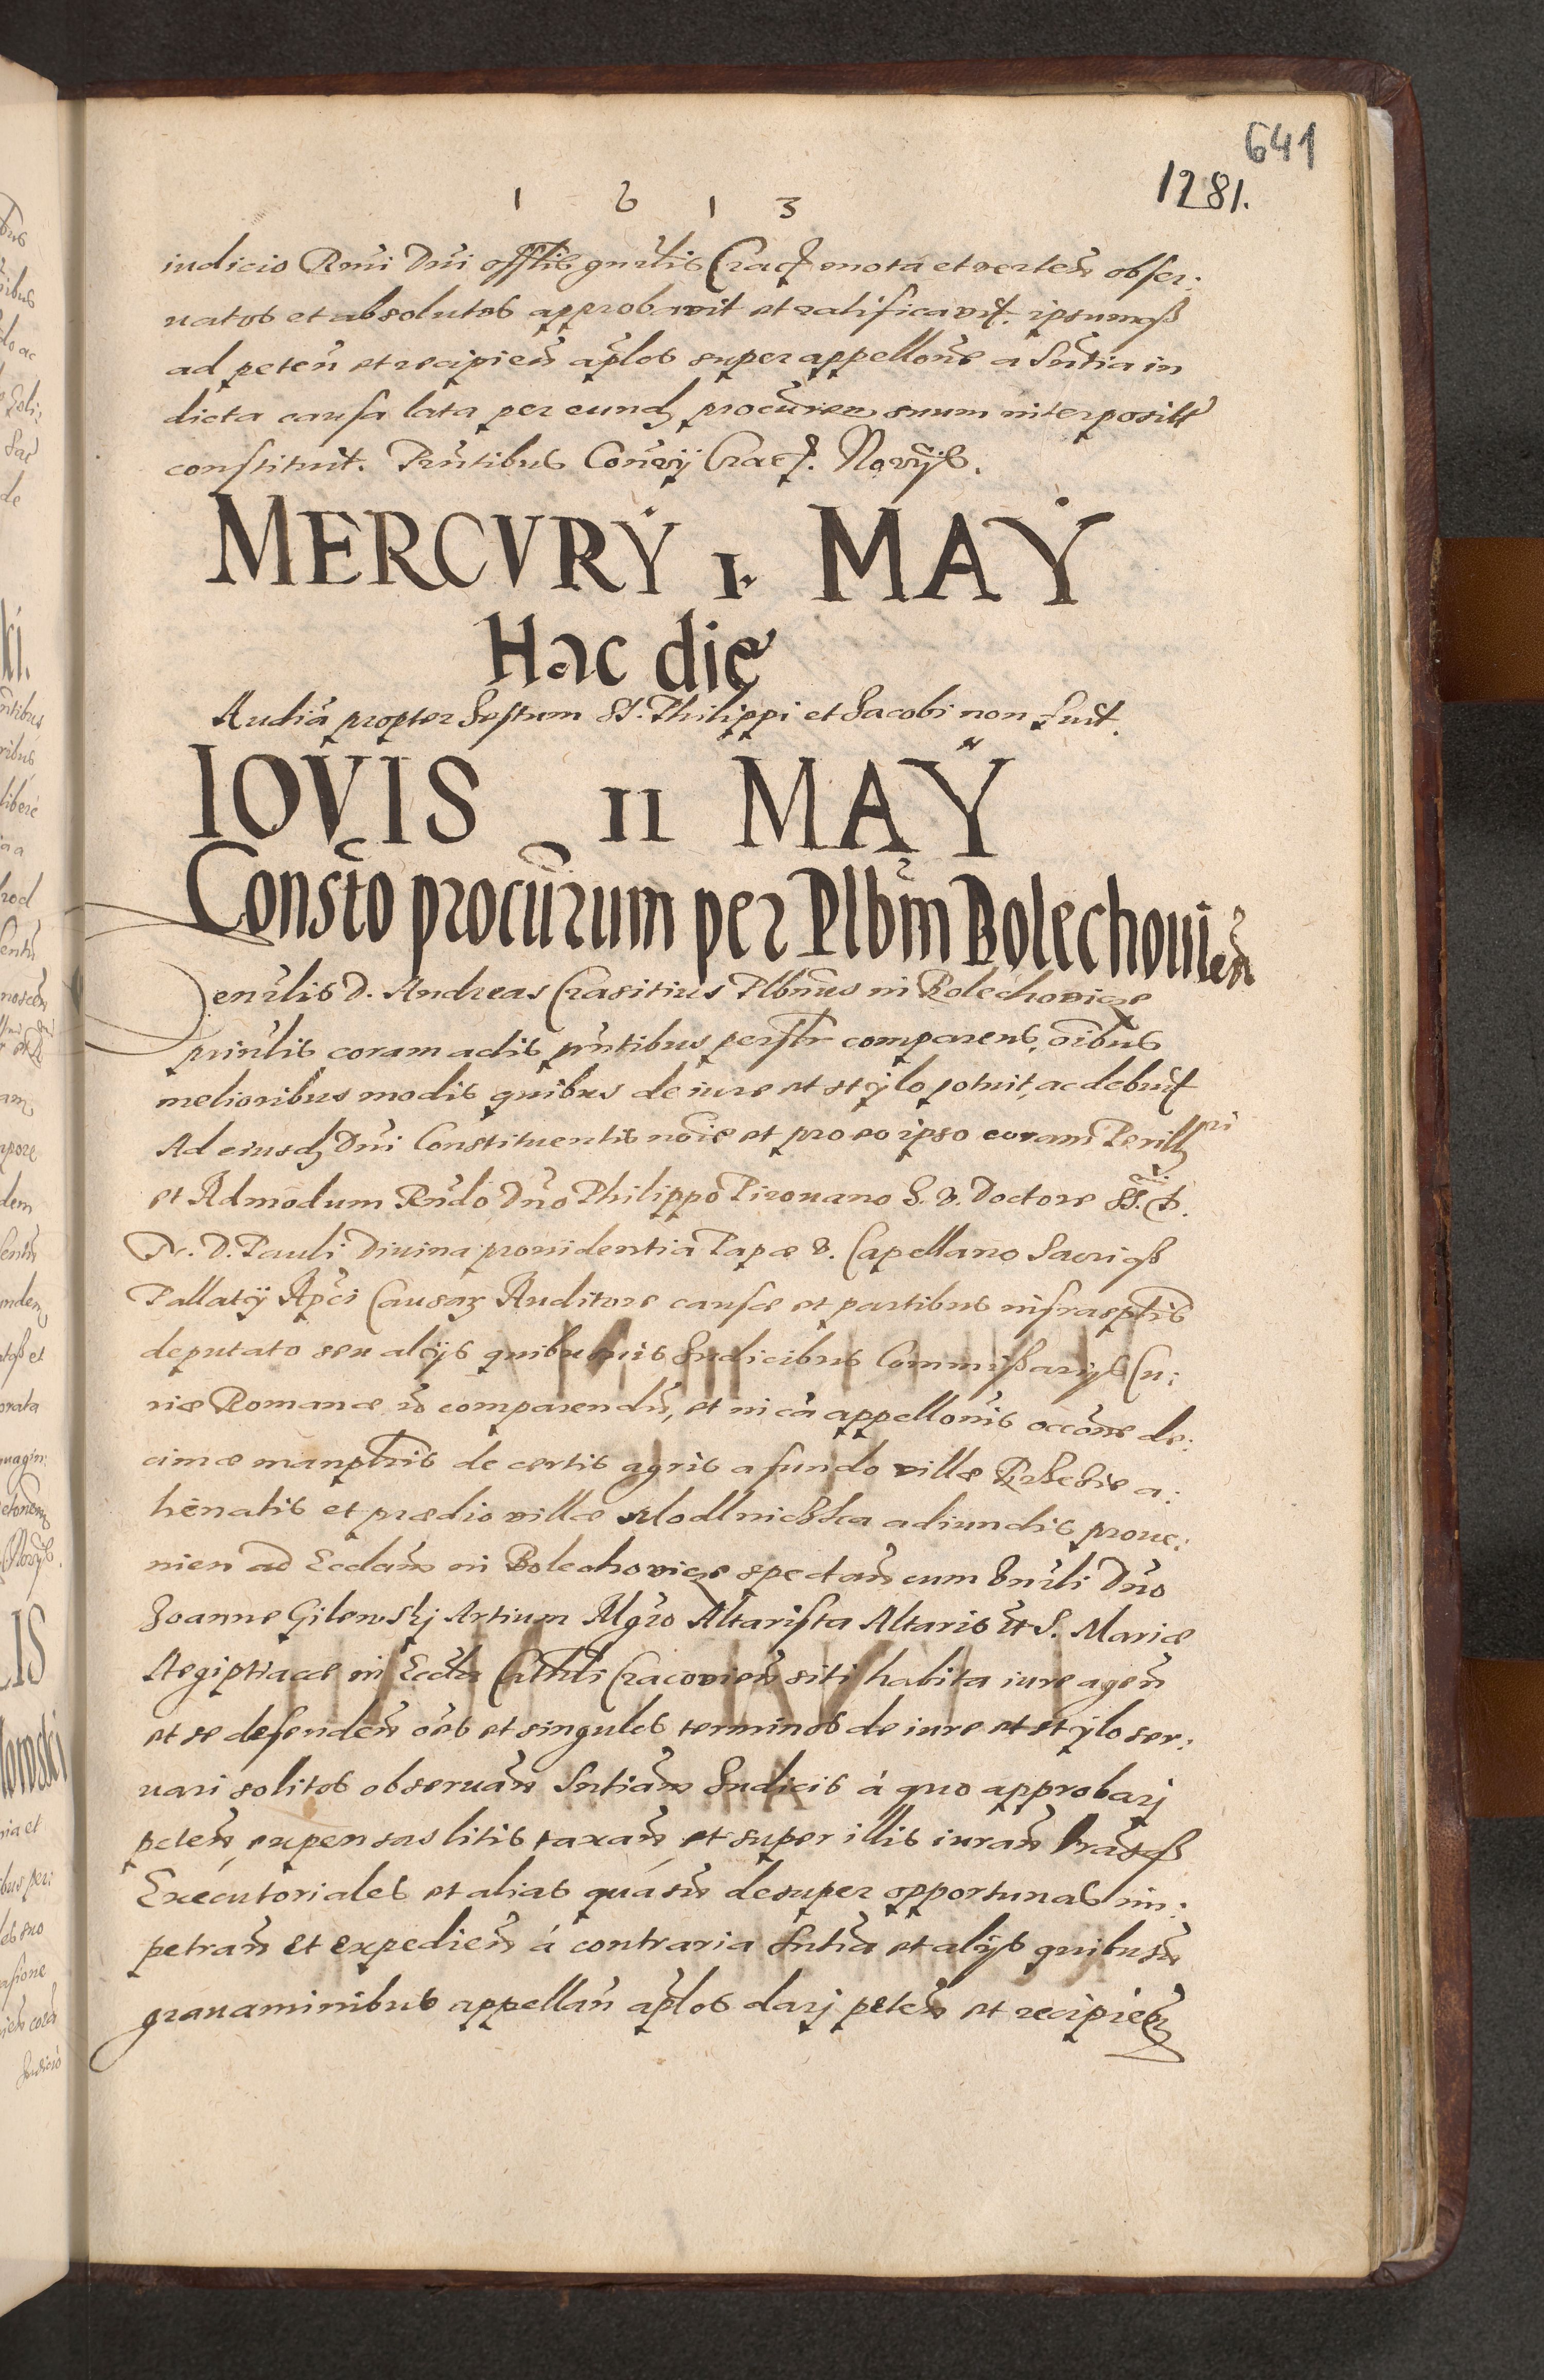 641
1281.
1 6 1 3
iudicio Rm̃i Dñi offlis gnr̃lis Crac. mota et verteñ obser:
vatos et absolutos approbavit et ratificavit. ipsumq̃
ad peteñ et recipieñ ap̃los super appellon̄e a Sn̄tia in
dicta causa lata per eund. procūren suum interposit
constituit. Pn̄tibus Con̄rÿ Crac. Norÿs.
MERCVRŸ 1. MAŸ
Hac die
Audiã propter Festum SS. Philippi et Jacobi non fuit.
IOVIS II MAŸ
Consto procũrum per Plbm̃ Bolechovień
Venr̃lis D. Andreas Crasitius Plbn̄us in Bolechovice
prin̄lis coram actis pn̄tibus persr comparens, oĩbus
melioribus modis quibus de iure et stylo potuit, ac debuit
Ad eiusd. Dñi Constituentis noĩe et pro eo ipso coram Perill ri
et Admodum Rn̄do Dño Philippo Pirovano J. V. Doctore SS.
Nr. D. Pauli Divina providentia Papæ V. Capellano Sacriq̃
Pallatÿ Ap̃ci Causar Auditore causæ et partibus infrasptis
deputato seu alÿs quibusvis Judicibus Commissarÿs Cu:
riæ Romanæ comparendũ, et in cã appellon̄is occōne de:
cimæ manplris de certis agris a fundo villæ a:
lienatis et prædio villæ Modlnicska adiunctis prove:
nien ad Ecclam̃ in Bolechovice spectañ cum Vnr̃li Dño
Joanne Gilewskj Artium Mgr̃o Altarista Altaris tt S. Mariæ
Aegiptiacæ in Eccla Cathli Cracovień siti habita iure ageñ
et se defendeñ oẽs et singulos terminos de iure et stylo ser:
vari solitos observañ Sntiam̃ Judicis á quo approbarj
peteñ, expensas litis taxañ et super illis iurañ
Executoriales et alias quasuis desuper opportunas im:
petrañ et expedieñ á contraria Sntia et alÿs quibusuis
gravaminibus appellañ ap̃los darj peteñ et recipieñ